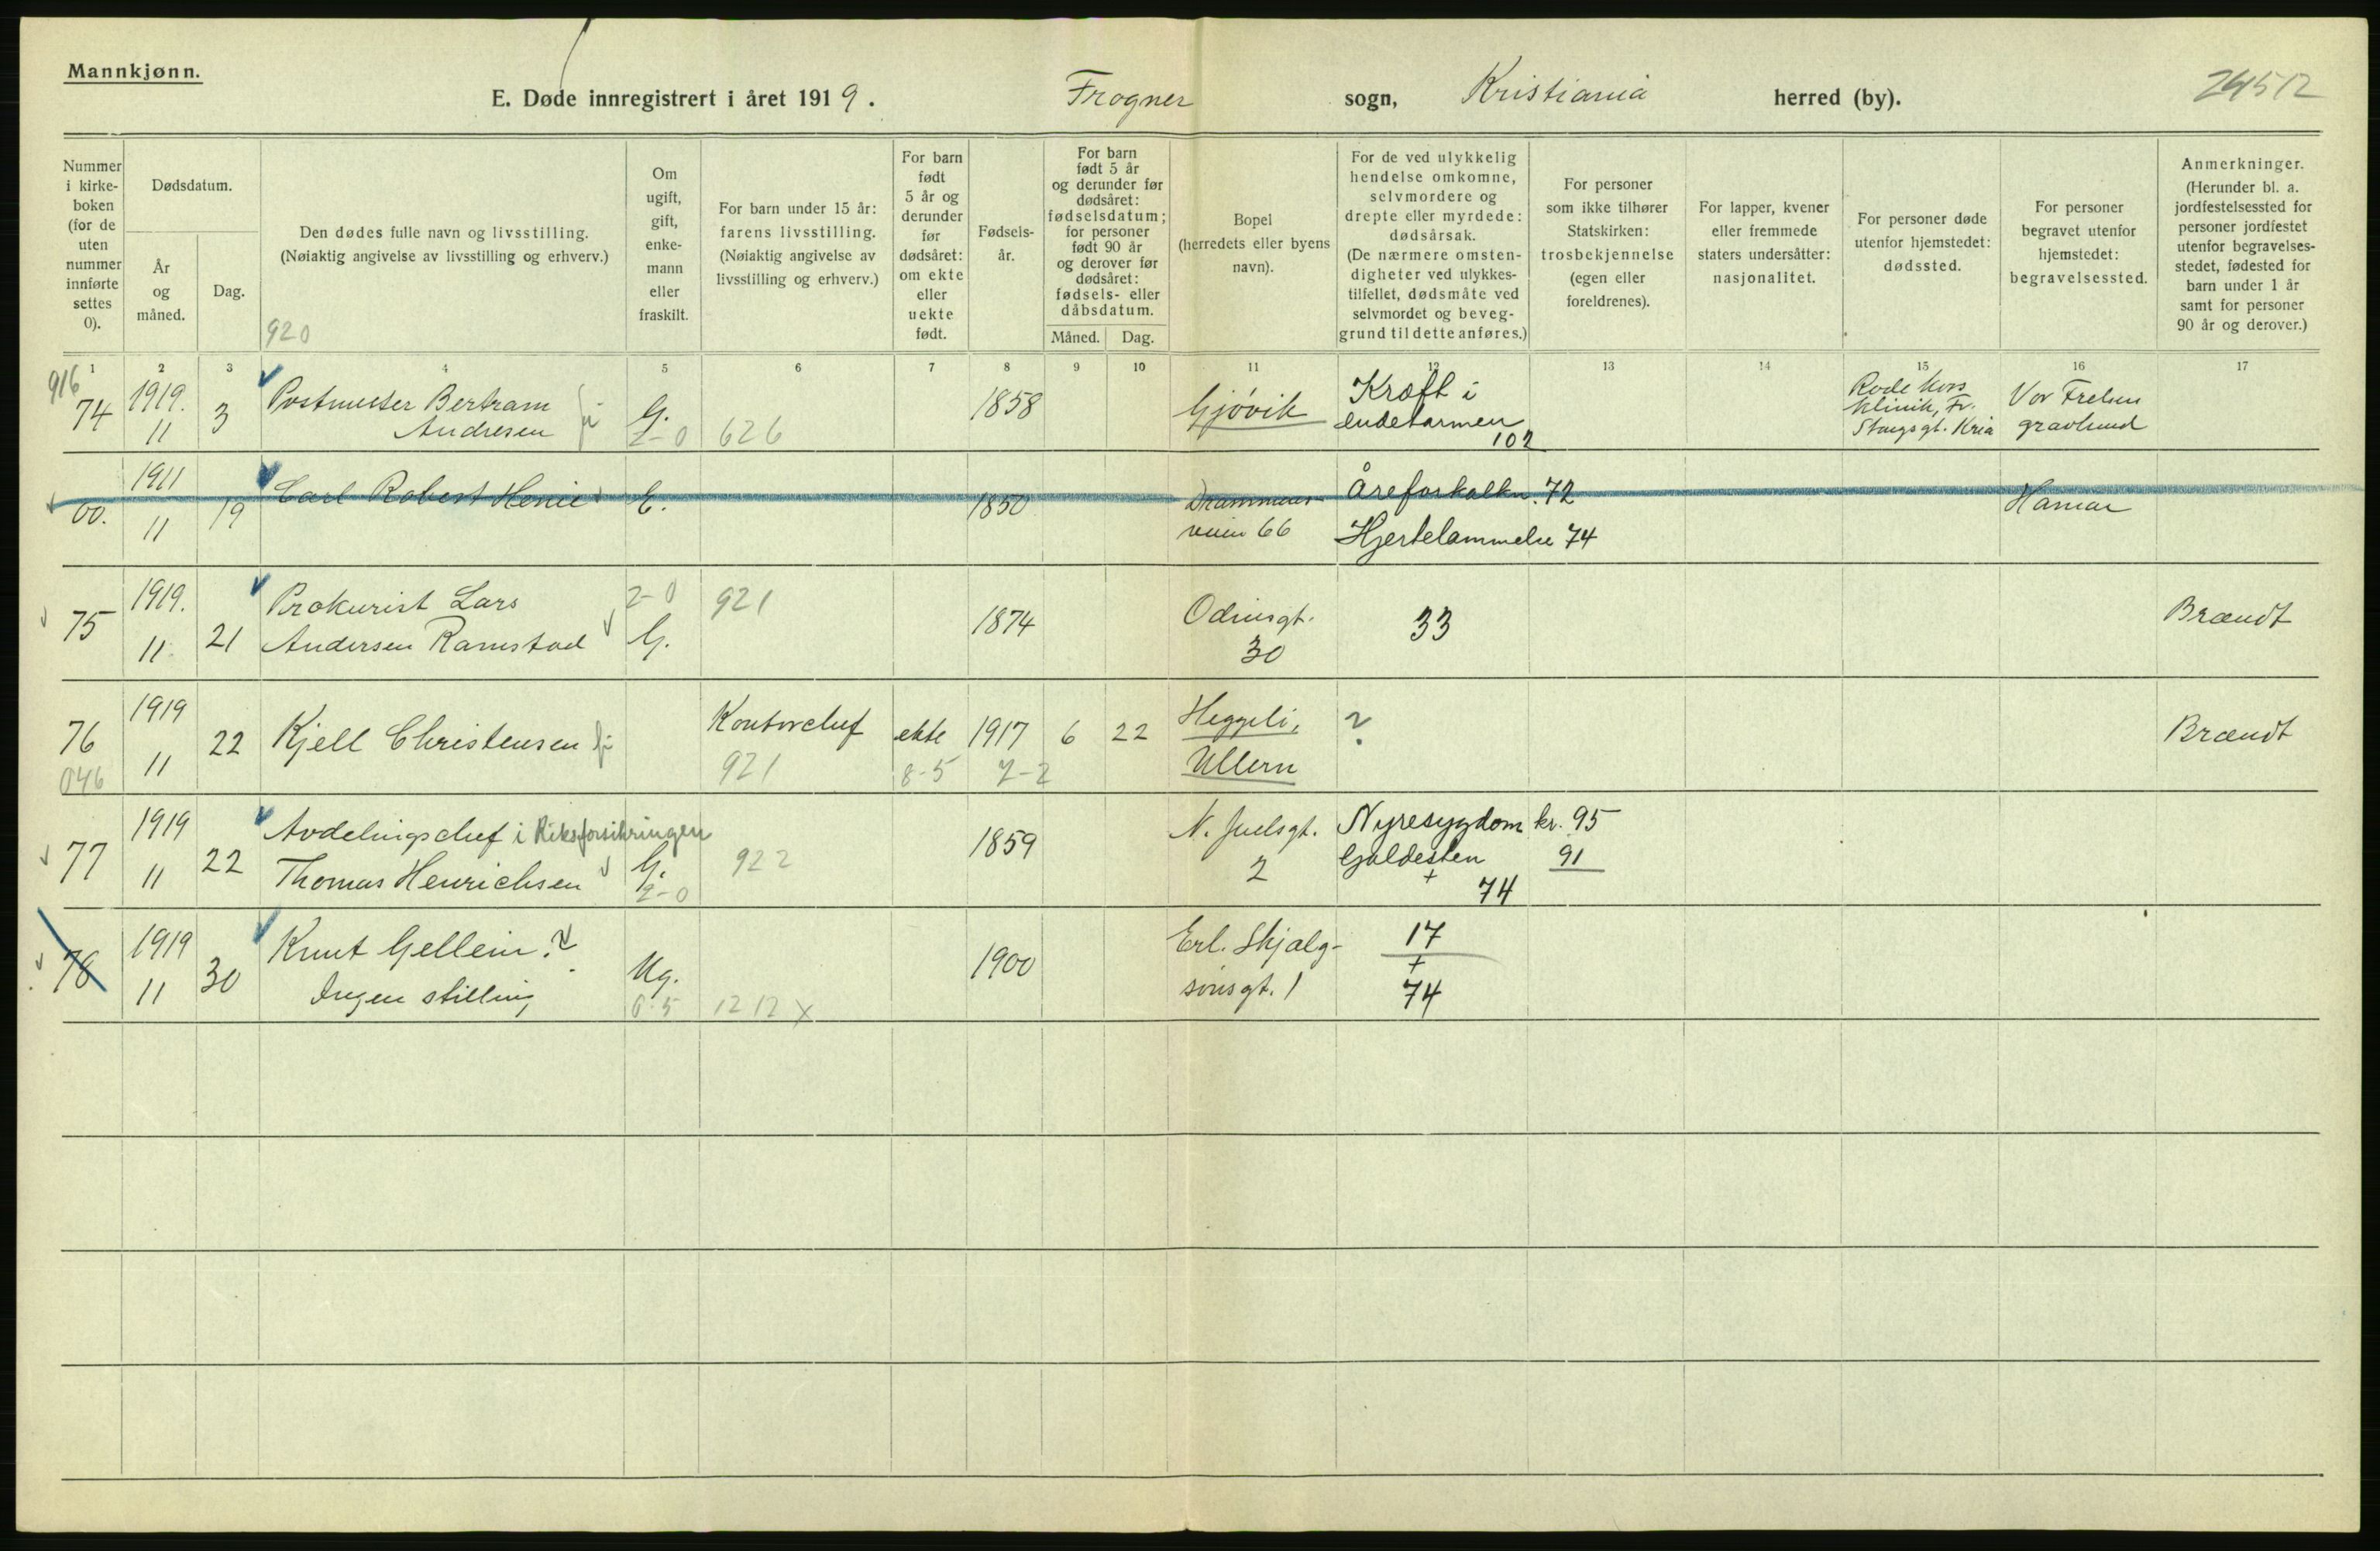 Mannkjønn.
E. Døde innregistrert i året 1919. Frogner sogn, Kristiania herred (by). 24512
Nummer i kirke-boken (for de uten nummer innførte settes 0).
Dødsdatum.
År og måned.
Dag.
Den dødes fulle navn og livsstilling.
(Nøiaktig angivelse av livsstilling og erhverv.)
920
Om ugift, gift, enke-mann eller fraskilt.
For barn under 15 år: farens livsstilling.
(Nøiaktig angivelse av livsstilling og erhverv.)
For barn født 5 år og derunder før dødsåret: om ekte eller uekte født.
Fødsels-år.
For barn født 5 år og derunder før dødsåret: fødselsdatum; for personer født 90 år og derover før dødsåret: fødsels- eller dåbsdatum.
Måned. Dag.
Bopel (herredets eller byens navn).
For de ved ulykkelig hendelse omkomne, selvmordere og drepte eller myrdede: dødsårsak.
(De nærmere omsten-digheter ved ulykkes-tilfellet, dødsmåte ved selvmordet og beveg-grund til dette anføres.)
For personer som ikke tilhører Statskirken: trosbekjennelse (egen eller foreldrenes).
For lapper, kvener eller fremmede staters undersåtter: nasjonalitet.
For personer døde utenfor hjemstedet: dødssted.
For personer begravet utenfor hjemstedet: begravelsessted.
Anmerkninger.
(Herunder bl. a. jordfestelsessted for personer jordfestet utenfor begravelses-stedet, fødested for barn under 1 år samt for personer 90 år og derover.)
1 2 3 4 5 6 7 8 9 10 11 12 13 14 15 16 17
916
74 1919. 11 3 Postmester Bertram Andresen G. 2-0 626 1858 Gjøvik Kræft i endetarmen 102 Røde Kors Klinik, Fr. Stangsgt. Kria Vor Frelsers gravlund
00. 1911 11 19 Carl Robert Henie E. 1850 Drammens-veien 66 Åreforkalkn. 72 Hjertelammelse 74 Hamar
75 1919. 11 21 Prokurist Lars Andersen Ramstad 2-0 G. 921 1874 Odinsgt. 30 33 Brændt
76 046 1919 11 22 Kjell Christensen Kontorchef 921 ekte 8-5 1917 7-2 6 22 Heggeli, Ullern ? Brændt
77 1919 11 22 Avdelingschef i Riksforsikringen Thomas Henrichsen G. 2-0 922 1859 N. Juelsgt. 2 Nyresygdom kr. 95 Galdesten 91 + 74
78 1919 11 30 Knut Gellein ? Ingen stilling Ug. 0-5 1212 x 1900 Erl. Skjalg-sønsgt. 1 17 + 74